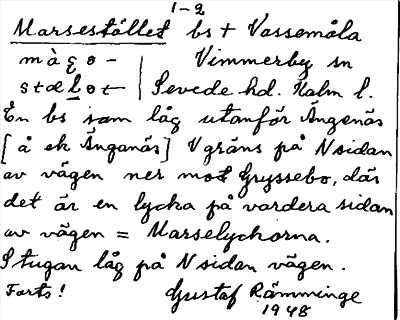 1-2
Marsestället bs t Vassemåla
màʂo- Vimmerby sn
stælət Sevede hd. Kalm l.
En bs som låg utanför Ängenäs
[å ek Änganäs] V gräns på N sidan
av vägen ner mot Gryssebo, där
det är en lycka på vardera sidan
av vägen = Marselyckorna.
Stugan låg på N sidan vägen.
Forts! Gustaf Rämminge
1948